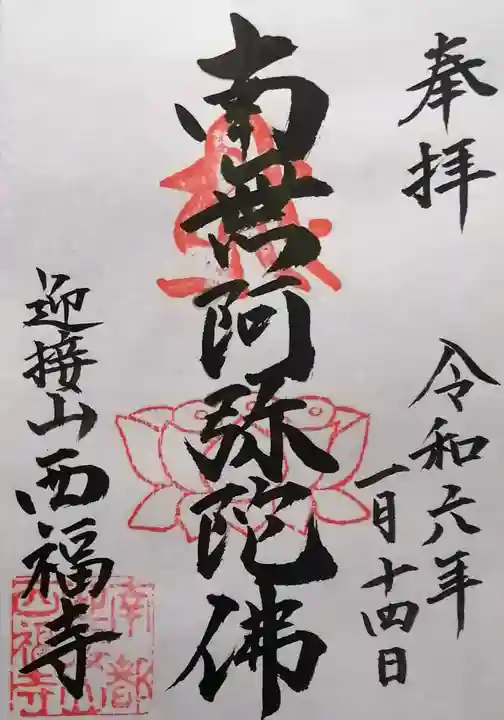 奉拝
令和六年
一月十四日
南無阿弥陀佛
迎接山西福寺
南都
西福寺